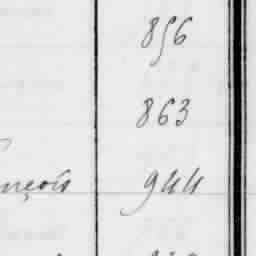 856
863
nçois 944